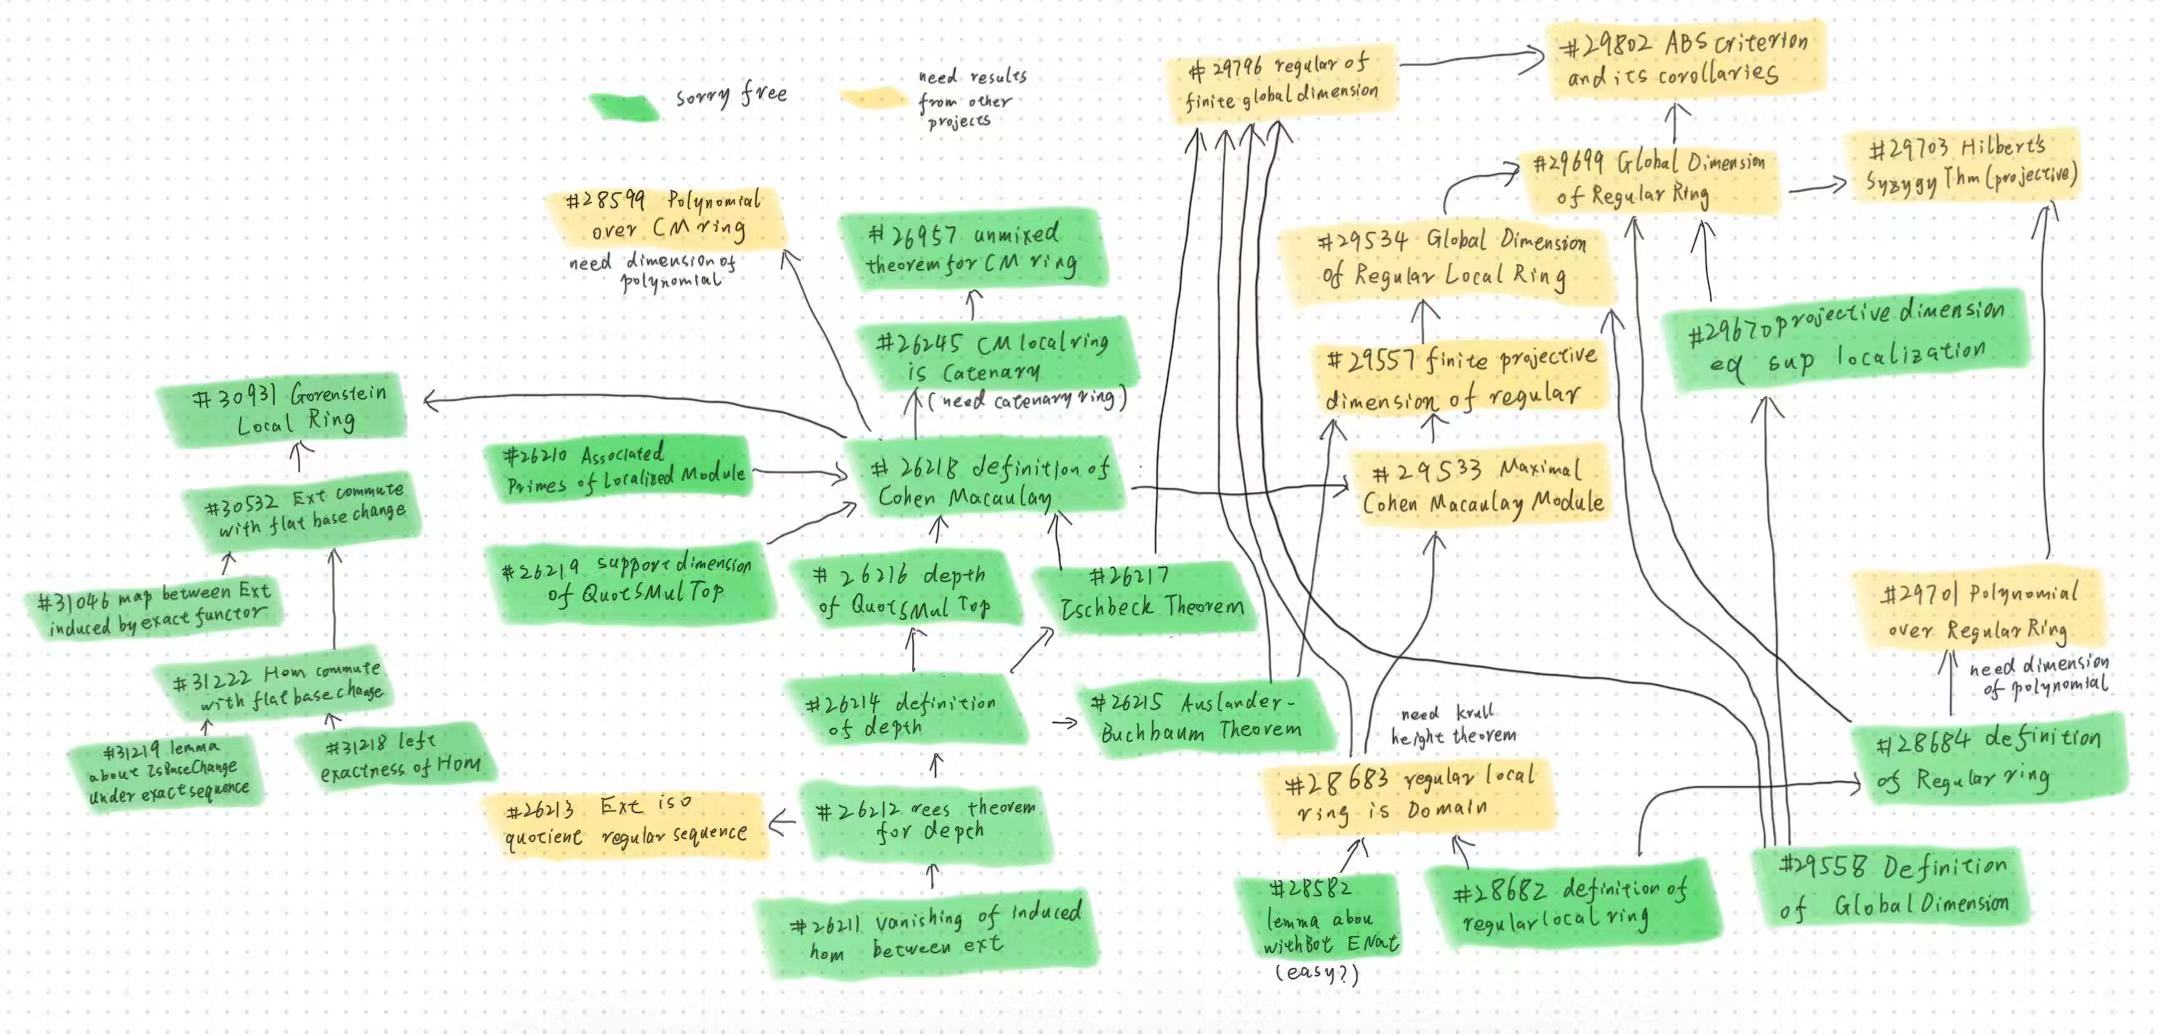 sorry free
need results
from other
projects
# 29796 regular of
finite global dimension
#29802 ABS criterion
and its corollaries
#29699 Global Dimension
of Regular Ring
#29703 Hilbert's
Syzygy Thm (projective)
#28599 Polynomial
over CM ring
need dimension of
polynomial
# 26957 unmixed
theorem for CM ring
#29534 Global Dimension
of Regular Local Ring
#26245 CM local ring
is Catenary
(need catenary ring)
#29670 projective dimension
eq sup localization
#29557 finite projective
dimension of regular
#30931 Gorenstein
Local Ring
#26210 Associated
Primes of Localized Module
# 26218 definition of
Cohen Macaulay
#29533 Maximal
Cohen Macaulay Module
#30532 Ext commute
with flat base change
#26219 support dimension
of QuotSMulTop
# 26216 depth
of QuotSMulTop
#26217
Ischbeck Theorem
#31046 map between Ext
induced by exact functor
#29701 Polynomial
over Regular Ring
need dimension
of polynomial
#31222 Hom commute
with flat base change
#26214 definition
of depth
#26215 Auslander-
Buchbaum Theorem
need krull
height theorem
#31219 lemma
about IsBaseChange
under exact sequence
#31218 left
exactness of Hom
#28684 definition
of Regular ring
#28683 regular local
ring is Domain
#26213 Ext iso
quotient regular sequence
#26212 rees theorem
for depth
#28582
lemma abou
withBot ENat
(easy?)
#28682 definition of
regular local ring
#29558 Definition
of Global Dimension
#26211 vanishing of induced
hom between ext